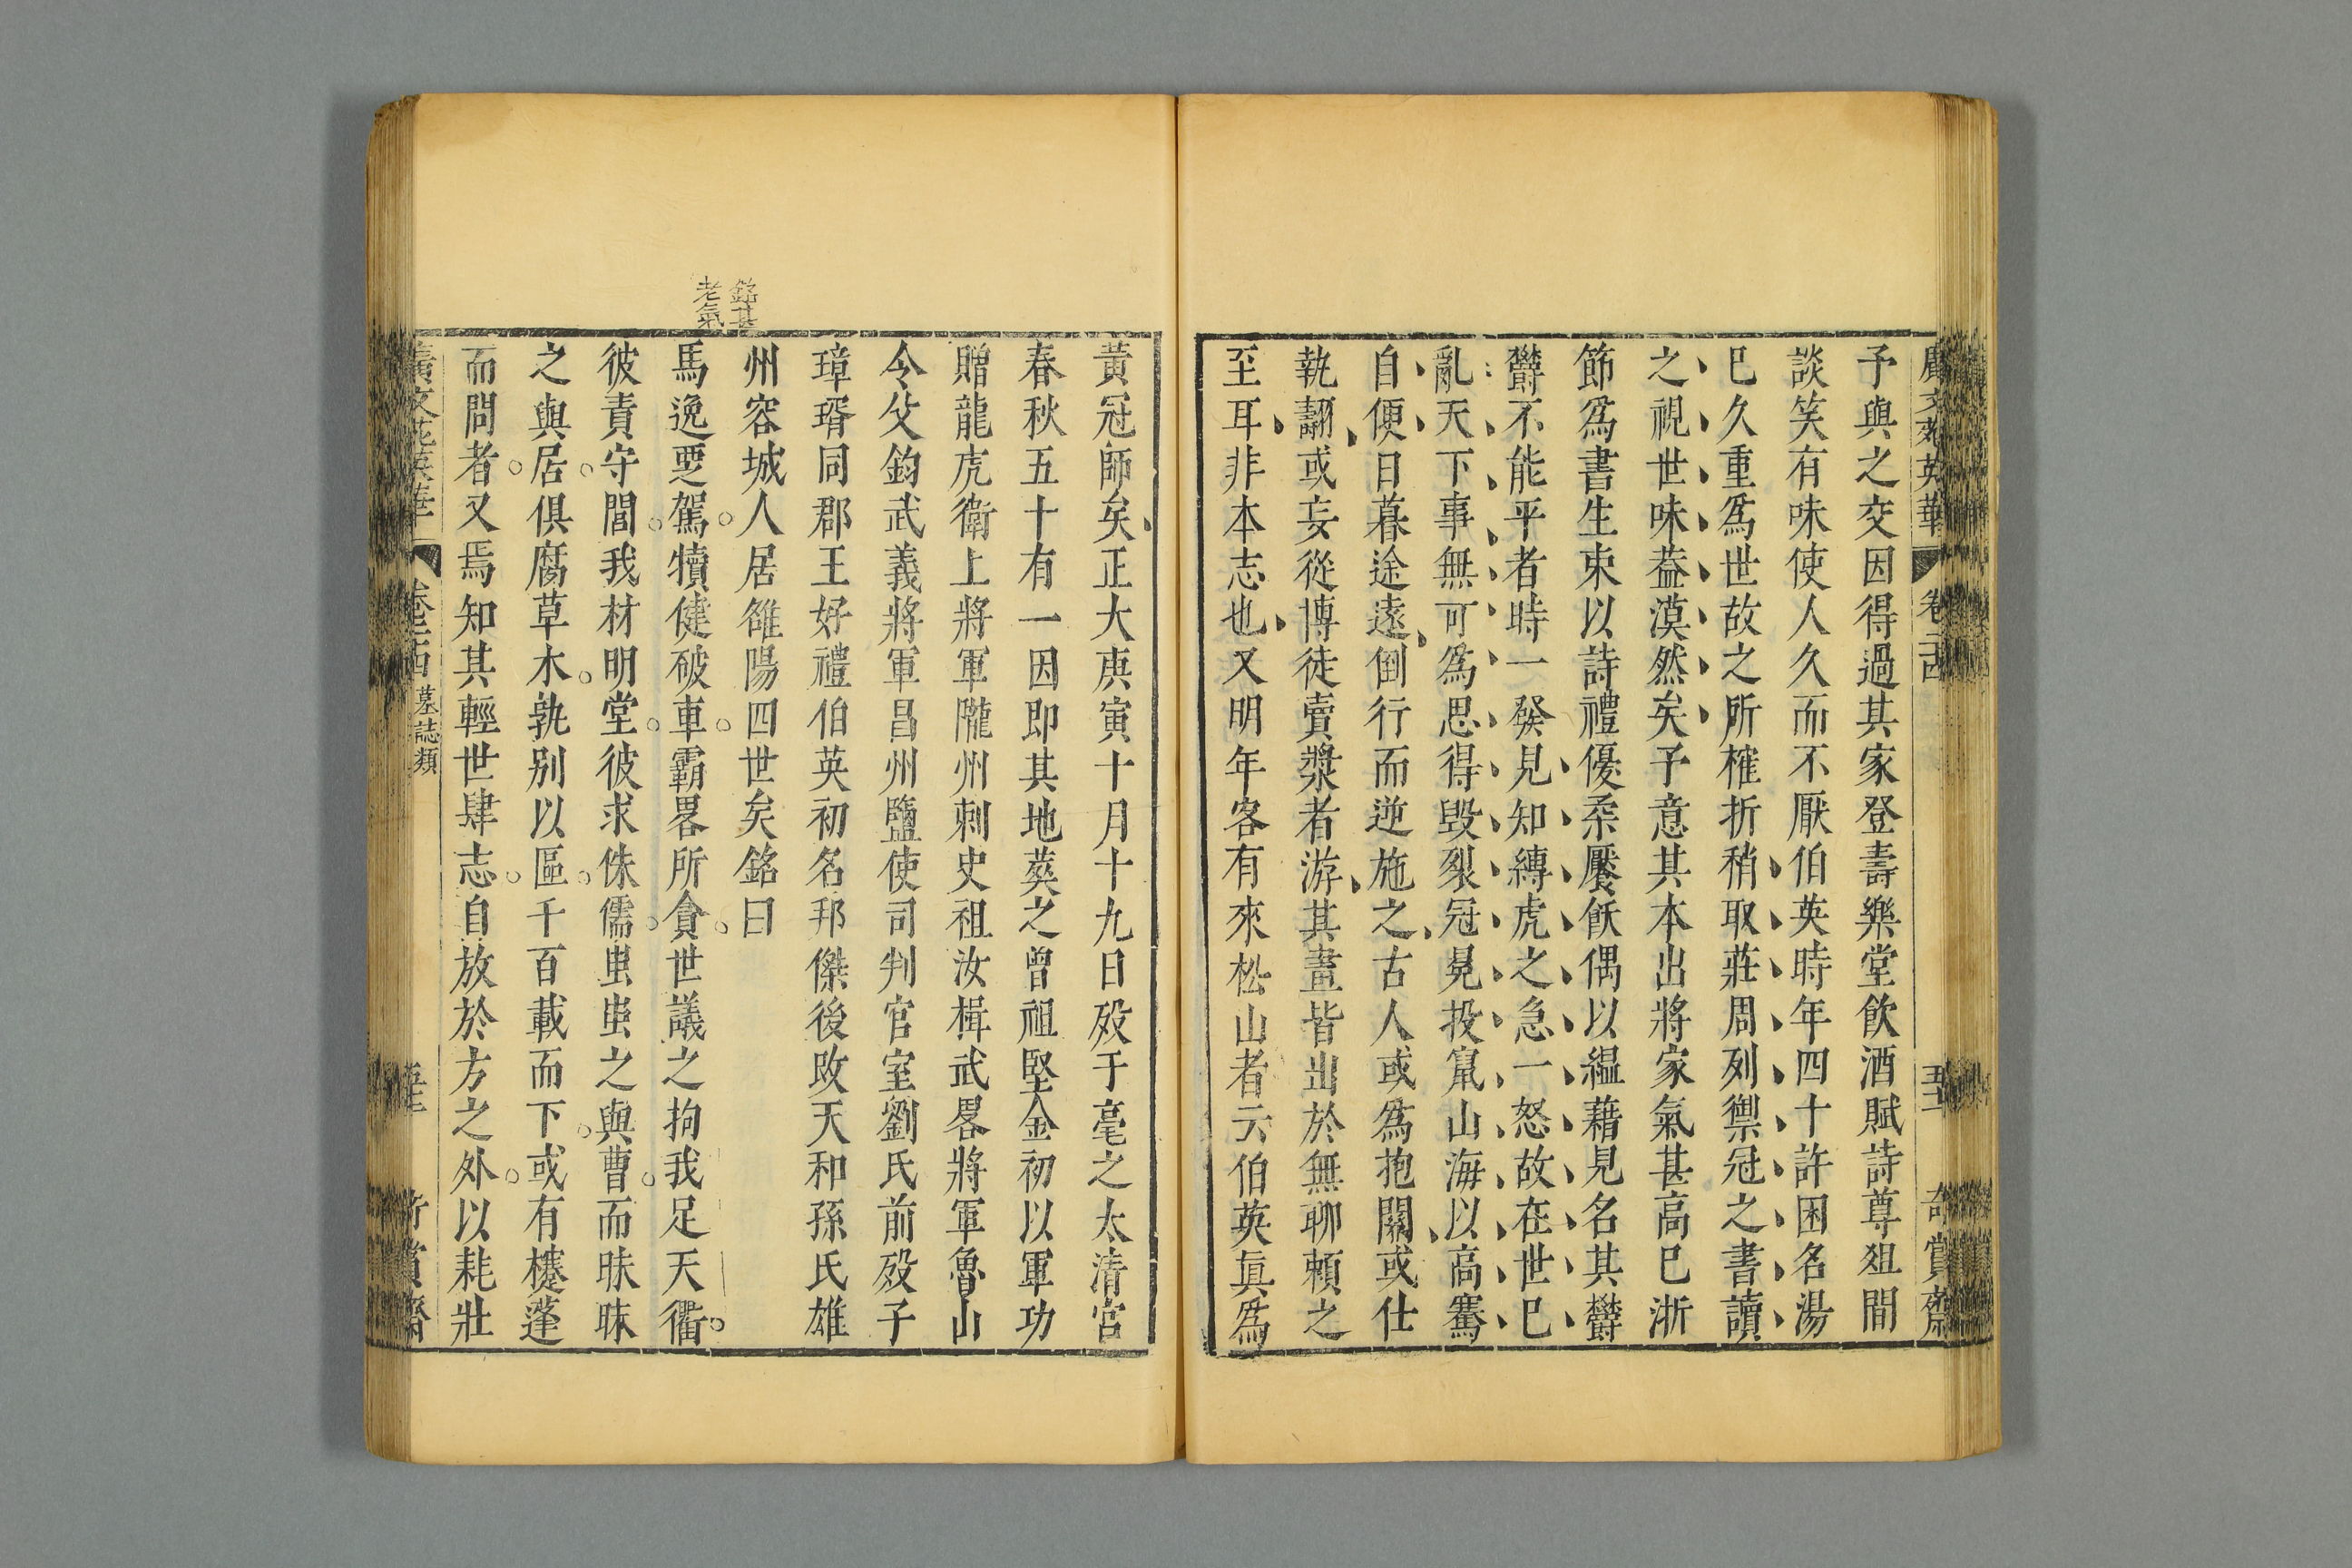 廣文苑英華
卷二十四
五十一
奇賞齋
予與之交因得過其家登壽樂堂飲酒賦詩尊爼間
談笑有味使人久而不厭伯英時年四十許困名湯
巳久重爲世故之所榷折稍取莊周列禦冠之書讀
之視世味葢漠然矣予意其本出將家氣甚高巳浙
節爲書生束以詩禮優柔饜飫偶以縕藉見名其欝
欝不能平者時一發見知縛虎之急一怒故在世巳
亂天下事無可爲思得毀裂冠冕投竄山海以高騫
自便日暮途遠倒行而逆施之古人或爲抱關或仕
執翿或妄從博徒賣漿者游其畫皆出於無聊頼之
至耳非本志也又明年客有來松山者云伯英眞爲
黃冠師矣正大庚寅十月十九日歿于亳之太清宮
春秋五十有一因即其地葬之曾祖堅金初以軍功
贈龍虎衛上將軍隴州刺史祖汝楫武畧將軍魯山
令父鈞武義將軍昌州鹽使司判官室劉氏前歿子
璋壻同郡王好禮伯英初名邦傑後攺天和孫氏雄
州容城人居雒陽四世矣銘曰
銘甚
老氣
馬逸覂駕犢健破車霸畧所貪世議之拘我足天衢
彼責守閭我材明堂彼求侏儒虫虫之與曹而昧昧
之與居俱腐草木孰别以區千百載而下或有櫏蓬
而問者又焉知其輕世肆志自放於方之外以耗壯
廣文苑英華
卷二十四
墓誌類
奇賞齋